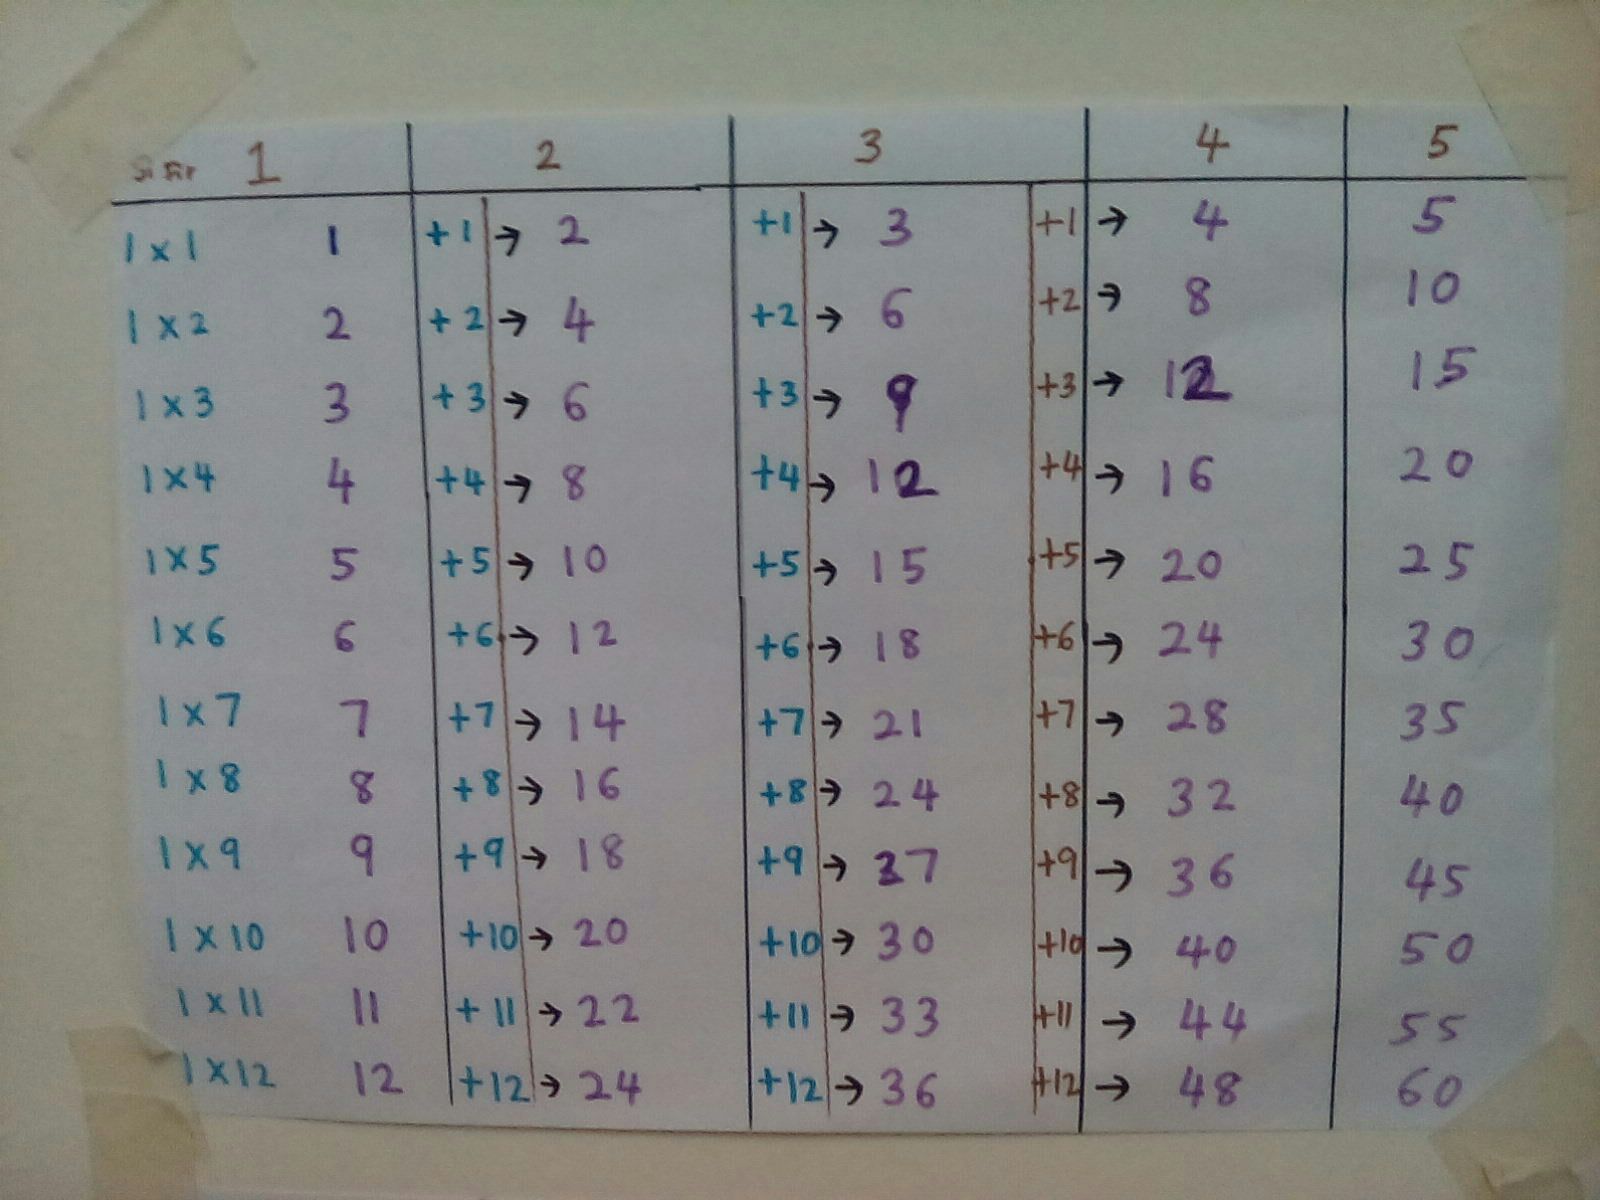 Sifir 1 2 3 4 5
1 x 1 1 +1 → 2 +1 → 3 +1 → 4 5
1 x 2 2 +2 → 4 +2 → 6 +2 → 8 10
1 x 3 3 +3 → 6 +3 → 9 +3 → 12 15
1 x 4 4 +4 → 8 +4 → 12 +4 → 16 20
1 x 5 5 +5 → 10 +5 → 15 +5 → 20 25
1 x 6 6 +6 → 12 +6 → 18 +6 → 24 30
1 x 7 7 +7 → 14 +7 → 21 +7 → 28 35
1 x 8 8 +8 → 16 +8 → 24 +8 → 32 40
1 x 9 9 +9 → 18 +9 → 27 +9 → 36 45
1 x 10 10 +10 → 20 +10 → 30 +10 → 40 50
1 x 11 11 +11 → 22 +11 → 33 +11 → 44 55
1 x 12 12 +12 → 24 +12 → 36 +12 → 48 60